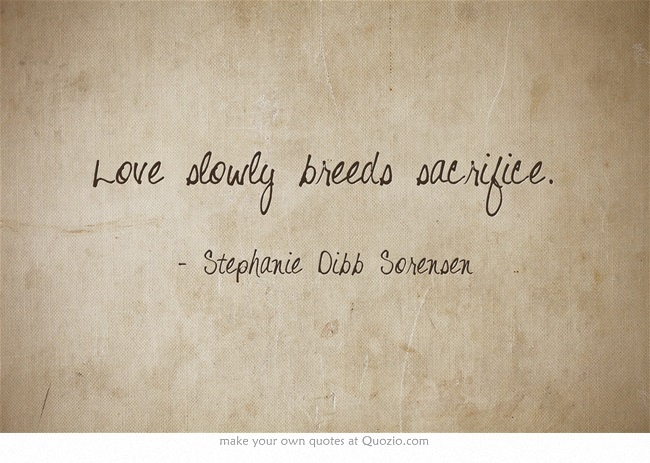 Love slowly breeds sacrifice.
- Stephanie Dibb Sorensen
make your own quotes at Quozio.com